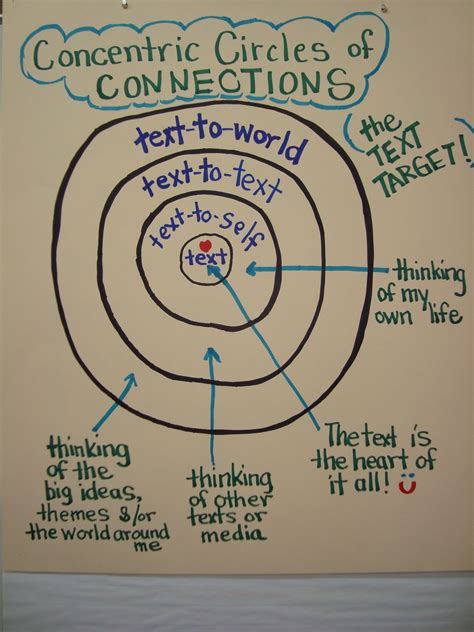 Concentric Circles of
CONNECTIONS
(the
TEXT
TARGET!)
text-to-world
text-to-text
text-to-self
text
thinking
of my
own life
thinking
of the
big ideas,
themes &/or
the world around
me
thinking
of other
texts or
media
The text is
the heart of
it all!